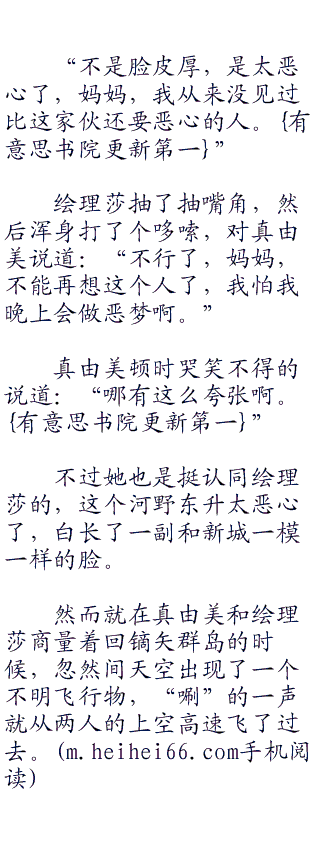 “不是脸皮厚，是太恶
心了，妈妈，我从来没见过
比这家伙还要恶心的人。{有
意思书院更新第一}”
绘理莎抽了抽嘴角，然
后浑身打了个哆嗦，对真由
美说道：“不行了，妈妈，
不能再想这个人了，我怕我
晚上会做恶梦啊。”
真由美顿时哭笑不得的
说道：“哪有这么夸张啊。
{有意思书院更新第一}”
不过她也是挺认同绘理
莎的，这个河野东升太恶心
了，白长了一副和新城一模
一样的脸。
然而就在真由美和绘理
莎商量着回镝矢群岛的时
候，忽然间天空出现了一个
不明飞行物，“唰”的一声
就从两人的上空高速飞了过
去。(m.heihei66.com手机阅
读)